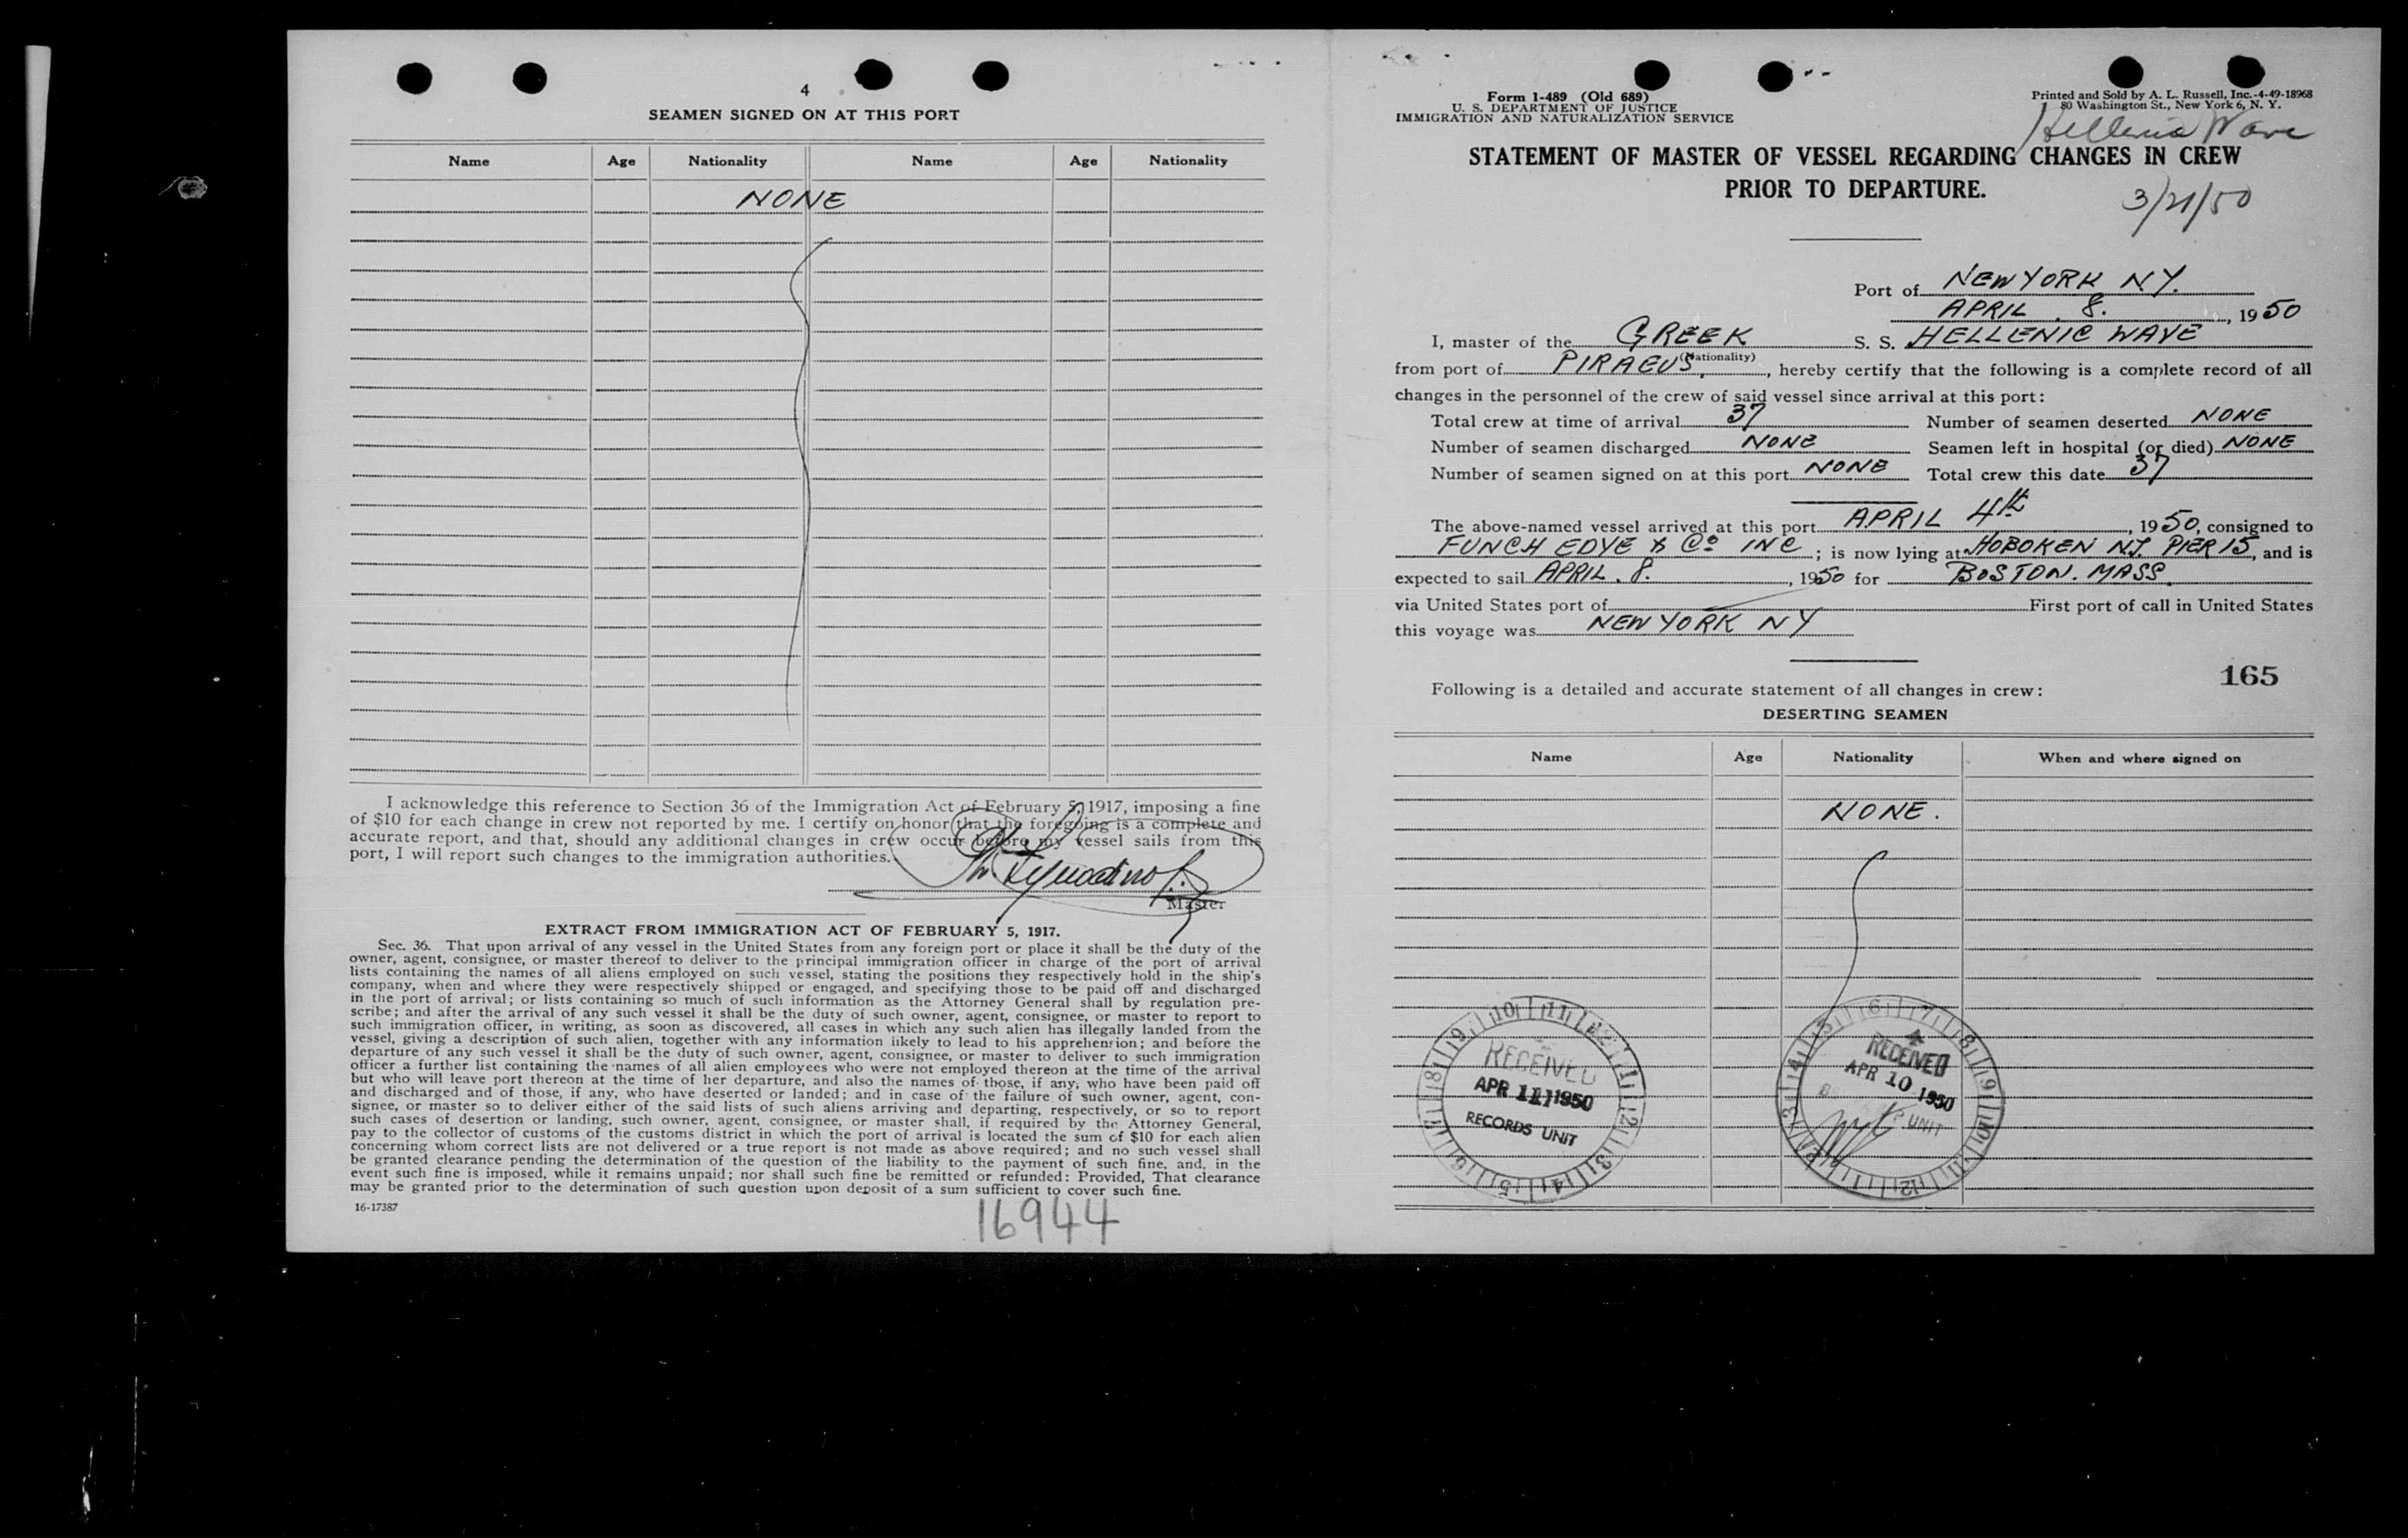 4
SEAMEN SIGNED ON AT THIS PORT
Name Age Nationality Name Age Nationality
NONE
I acknowledge this reference to Section 36 of the Immigration Act of February 5, 1917, imposing a fine
of $10 for each change in crew not reported by me. I certify on honor that the foregoing is a complete and
accurate report, and that, should any additional changes in crew occur before my vessel sails from this
port, I will report such changes to the immigration authorities.
Master
EXTRACT FROM IMMIGRATION ACT OF FEBRUARY 5, 1917.
Sec. 36. That upon arrival of any vessel in the United States from any foreign port or place it shall be the duty of the
owner, agent, consignee, or master thereof to deliver to the principal immigration officer in charge of the port of arrival
lists containing the names of all aliens employed on such vessel, stating the positions they respectively hold in the ship's
company, when and where they were respectively shipped or engaged, and specifying those to be paid off and discharged
in the port of arrival; or lists containing so much of such information as the Attorney General shall by regulation pre-
scribe; and after the arrival of any such vessel it shall be the duty of such owner, agent, consignee, or master to report to
such immigration officer, in writing, as soon as discovered, all cases in which any such alien has illegally landed from the
vessel, giving a description of such alien, together with any information likely to lead to his apprehension; and before the
departure of any such vessel it shall be the duty of such owner, agent, consignee, or master to deliver to such immigration
officer a further list containing the names of all alien employees who were not employed thereon at the time of the arrival
but who will leave port thereon at the time of her departure, and also the names of those, if any, who have been paid off
and discharged and of those, if any, who have deserted or landed; and in case of the failure of such owner, agent, con-
signee, or master so to deliver either of the said lists of such aliens arriving and departing, respectively, or so to report
such cases of desertion or landing, such owner, agent, consignee, or master shall, if required by the Attorney General,
pay to the collector of customs of the customs district in which the port of arrival is located the sum of $10 for each alien
concerning whom correct lists are not delivered or a true report is not made as above required; and no such vessel shall
be granted clearance pending the determination of the question of the liability to the payment of such fine, and, in the
event such fine is imposed, while it remains unpaid; nor shall such fine be remitted or refunded: Provided, That clearance
may be granted prior to the determination of such question upon deposit of a sum sufficient to cover such fine.
16-17387
16944
Form 1-489 (Old 689)
U. S. DEPARTMENT OF JUSTICE
IMMIGRATION AND NATURALIZATION SERVICE
Printed and Sold by A. L. Russell, Inc.-4-49-18968
80 Washington St., New York 6, N. Y.
Hellenic Wave
STATEMENT OF MASTER OF VESSEL REGARDING CHANGES IN CREW
PRIOR TO DEPARTURE.
3/21/50
Port of NEW YORK NY.
APRIL . 8. , 1950
I, master of the GREEK S. S. HELLENIC WAVE
(Nationality)
from port of PIRAEUS, , hereby certify that the following is a complete record of all
changes in the personnel of the crew of said vessel since arrival at this port:
Total crew at time of arrival 37 Number of seamen deserted NONE
Number of seamen discharged NONE Seamen left in hospital (or died) NONE
Number of seamen signed on at this port NONE Total crew this date 37
The above-named vessel arrived at this port APRIL 4th , 1950, consigned to
FUNCH EDYE & Co INC ; is now lying at HOBOKEN N.J. PIER 15, and is
expected to sail APRIL . 8. , 1950 for BOSTON. MASS.
via United States port of First port of call in United States
this voyage was NEW YORK NY
165
Following is a detailed and accurate statement of all changes in crew:
DESERTING SEAMEN
Name Age Nationality When and where signed on
NONE.
RECEIVED
APR 11 1950
RECORDS UNIT
RECEIVED
APR 10 1950
UNIT